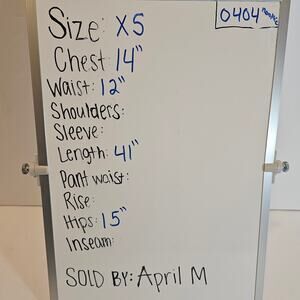 0404
Size: XS
Chest 14"
Waist: 12"
Shoulders:
Sleeve:
Length: 41"
Pant waist:
Rise:
Hips: 15"
Inseam:
SOLD BY: April M